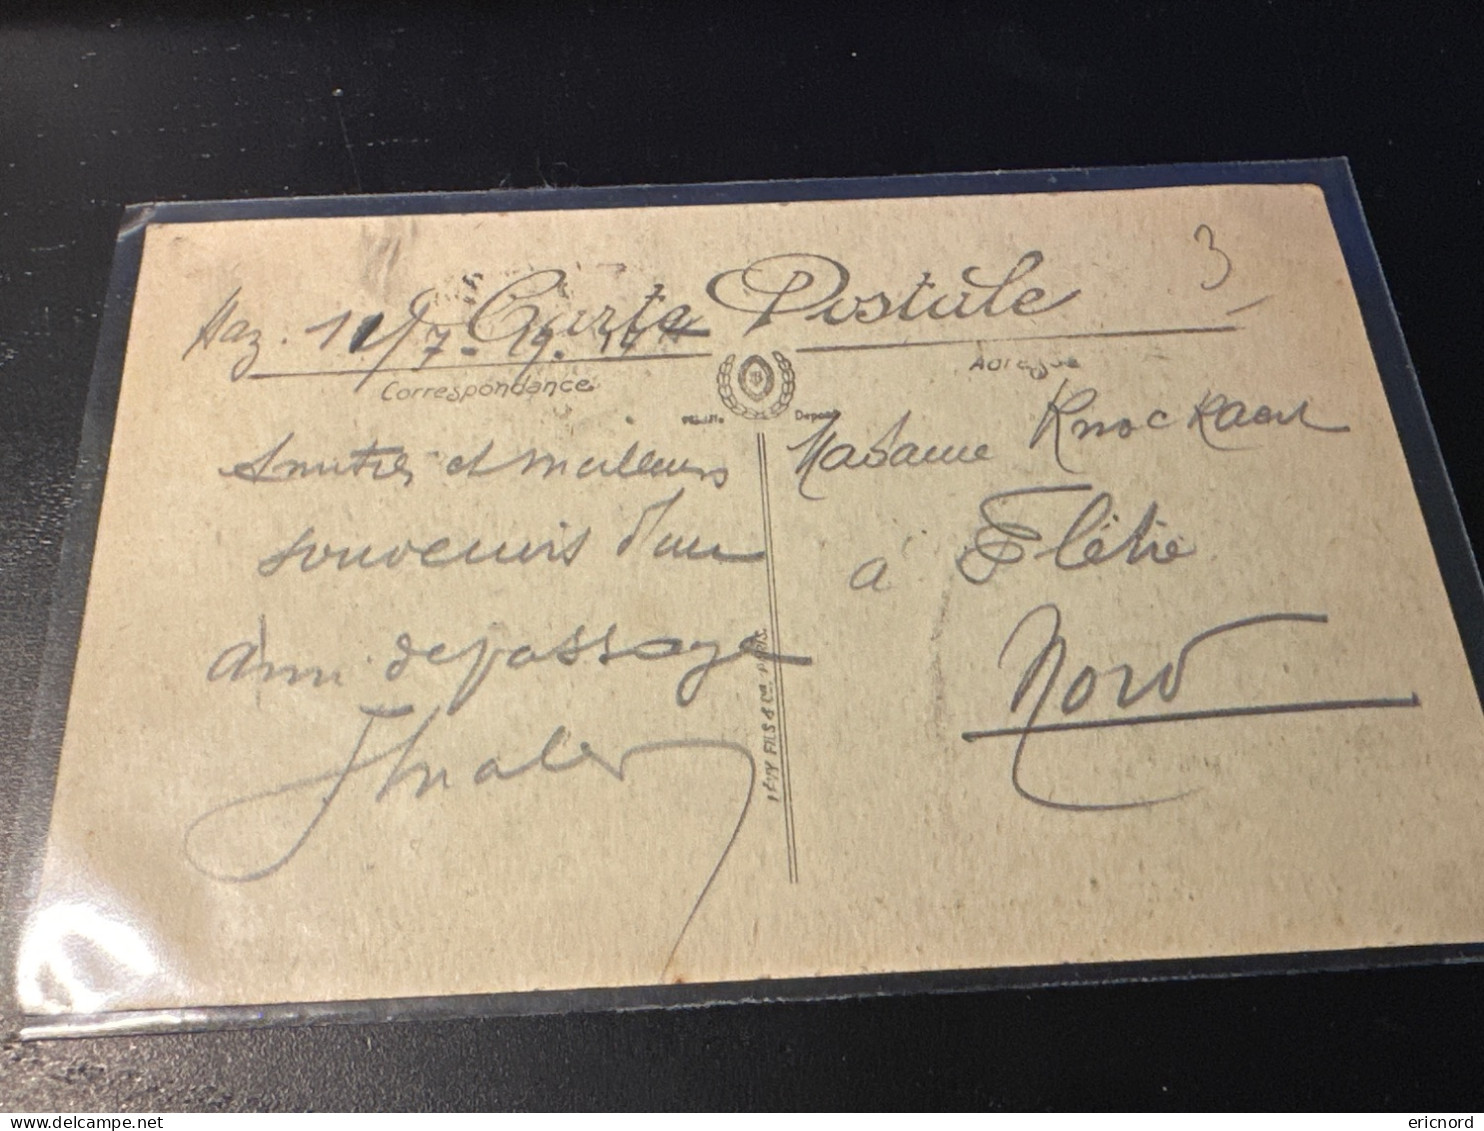 3
Carte Postale
Haz. 11/7-19.
Correspondance
Adresse
Modèle Déposé
Amitiés et meilleurs
souvenirs d'un
ami de passage
Madame Knockaert
à Flêtre
Nord
LÉVY FILS & Cie PARIS
www.delcampe.net
ericnord